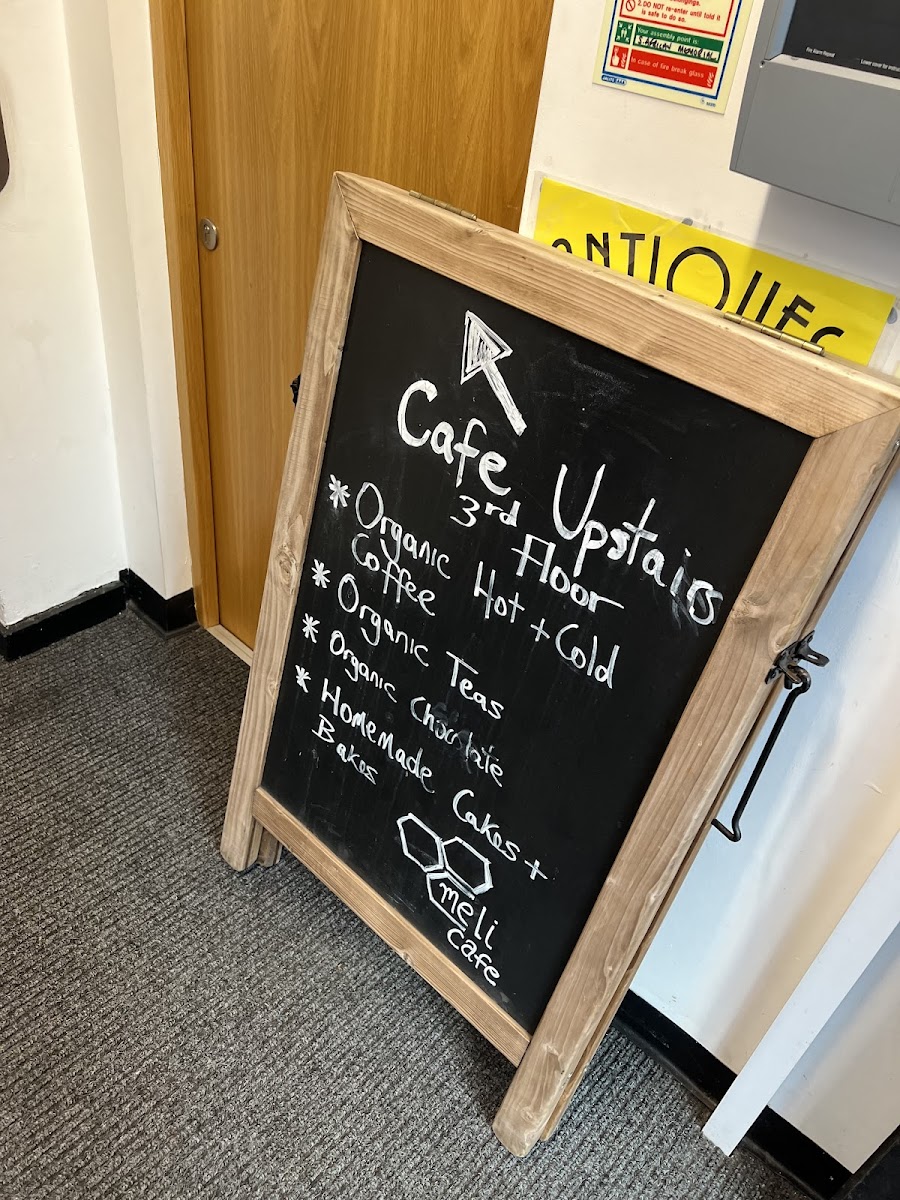 belongings.
2. DO NOT re-enter until told it
is safe to do so.
Your assembly point is:
S. AFRICAN MEMORIAL
In case of fire break glass
Fire Alarm Repeat
ANTIQUES
Cafe Upstairs
3rd Floor
* Organic Hot + Cold
Coffee
* Organic Teas
* Organic Chocolate
* Homemade Cakes +
Bakes
meli
cafe